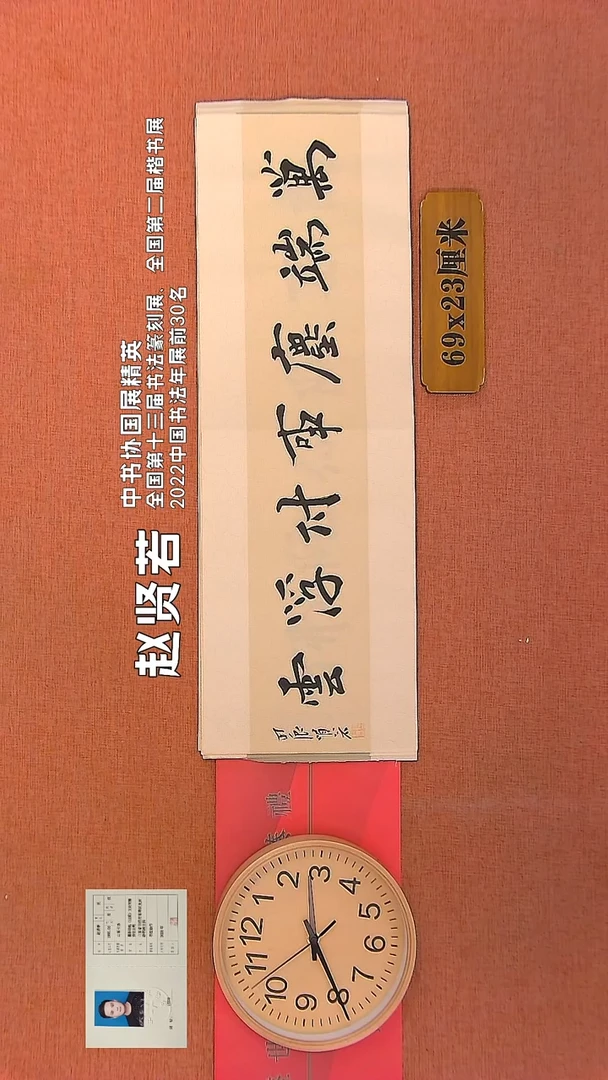 赵贤若
中书协国展精英
全国第十三届书法篆刻展、全国第二届楷书展
2022中国书法年展前30名
萬端塵事付浮雲
69x23厘米
12
1
2
3
4
5
6
7
8
9
10
11